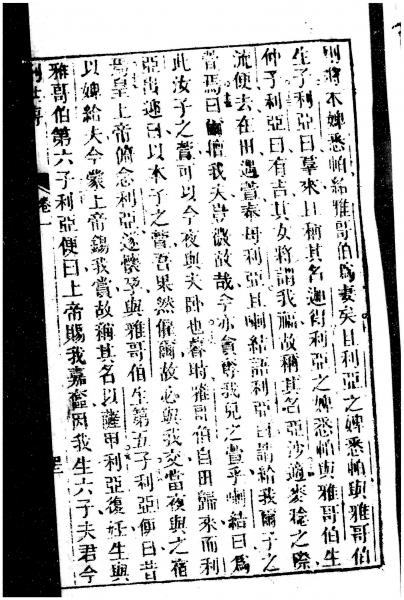 則將本婢悉帕給雅哥伯爲妻矣且利亞之婢悉帕與雅哥伯
生子利亞曰羣來且稱其名迦得利亞之婢悉帕與雅哥伯生
仲子利亞曰有吉其女將謂我福故稱其名亞沙適麥稔之際
流便去在田遇萱奉母利亞且喇結語利亞曰請給我爾子之
萱焉曰爾僧我夫豈微故哉今亦貪尊我兒之萱乎喇結曰爲
此汝子之萱可以今夜與夫臥也暮時雅哥伯自田歸來而利
亞出迎曰以本子之萱吾果然僱爾故必與我交當夜與之宿
焉皇上帝俯念利亞遂懷孕與雅哥伯生第五子利亞便曰昔
以婢給夫今蒙上帝錫我賞故稱其名以薩甲利亞復妊生與
雅哥伯第六子利亞便曰上帝賜我嘉奩因我生六子夫君今
創世傳 卷一